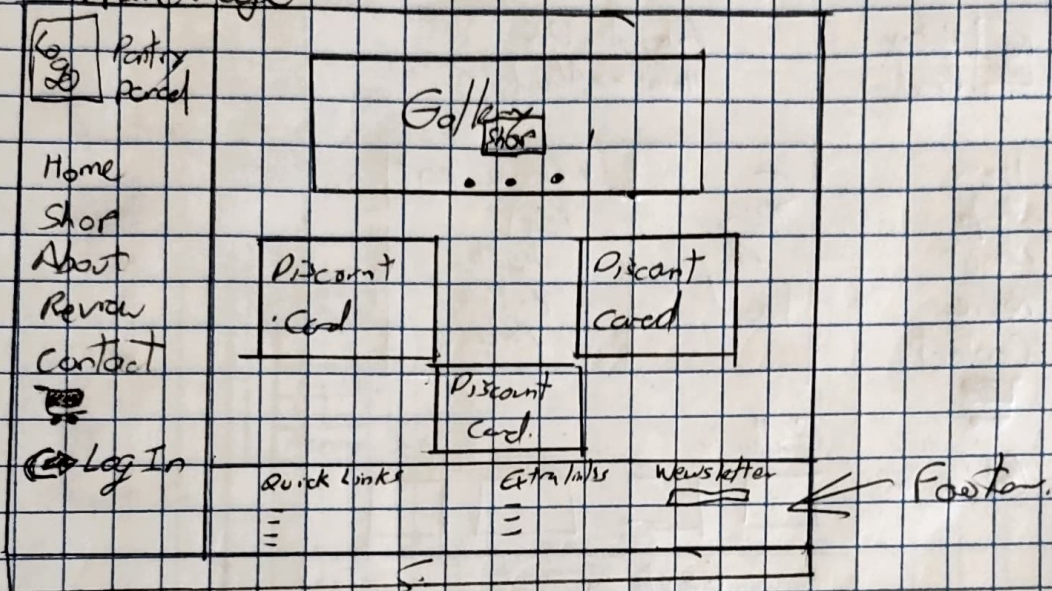 Logo
Pantry
parcel
Home
Shop
About
Review
Contact
Log In
Gallery
Shop
Discount
Card
Discant
Cared
Discount
Card.
Quick Links
Extra links
Newsletter
Footer.